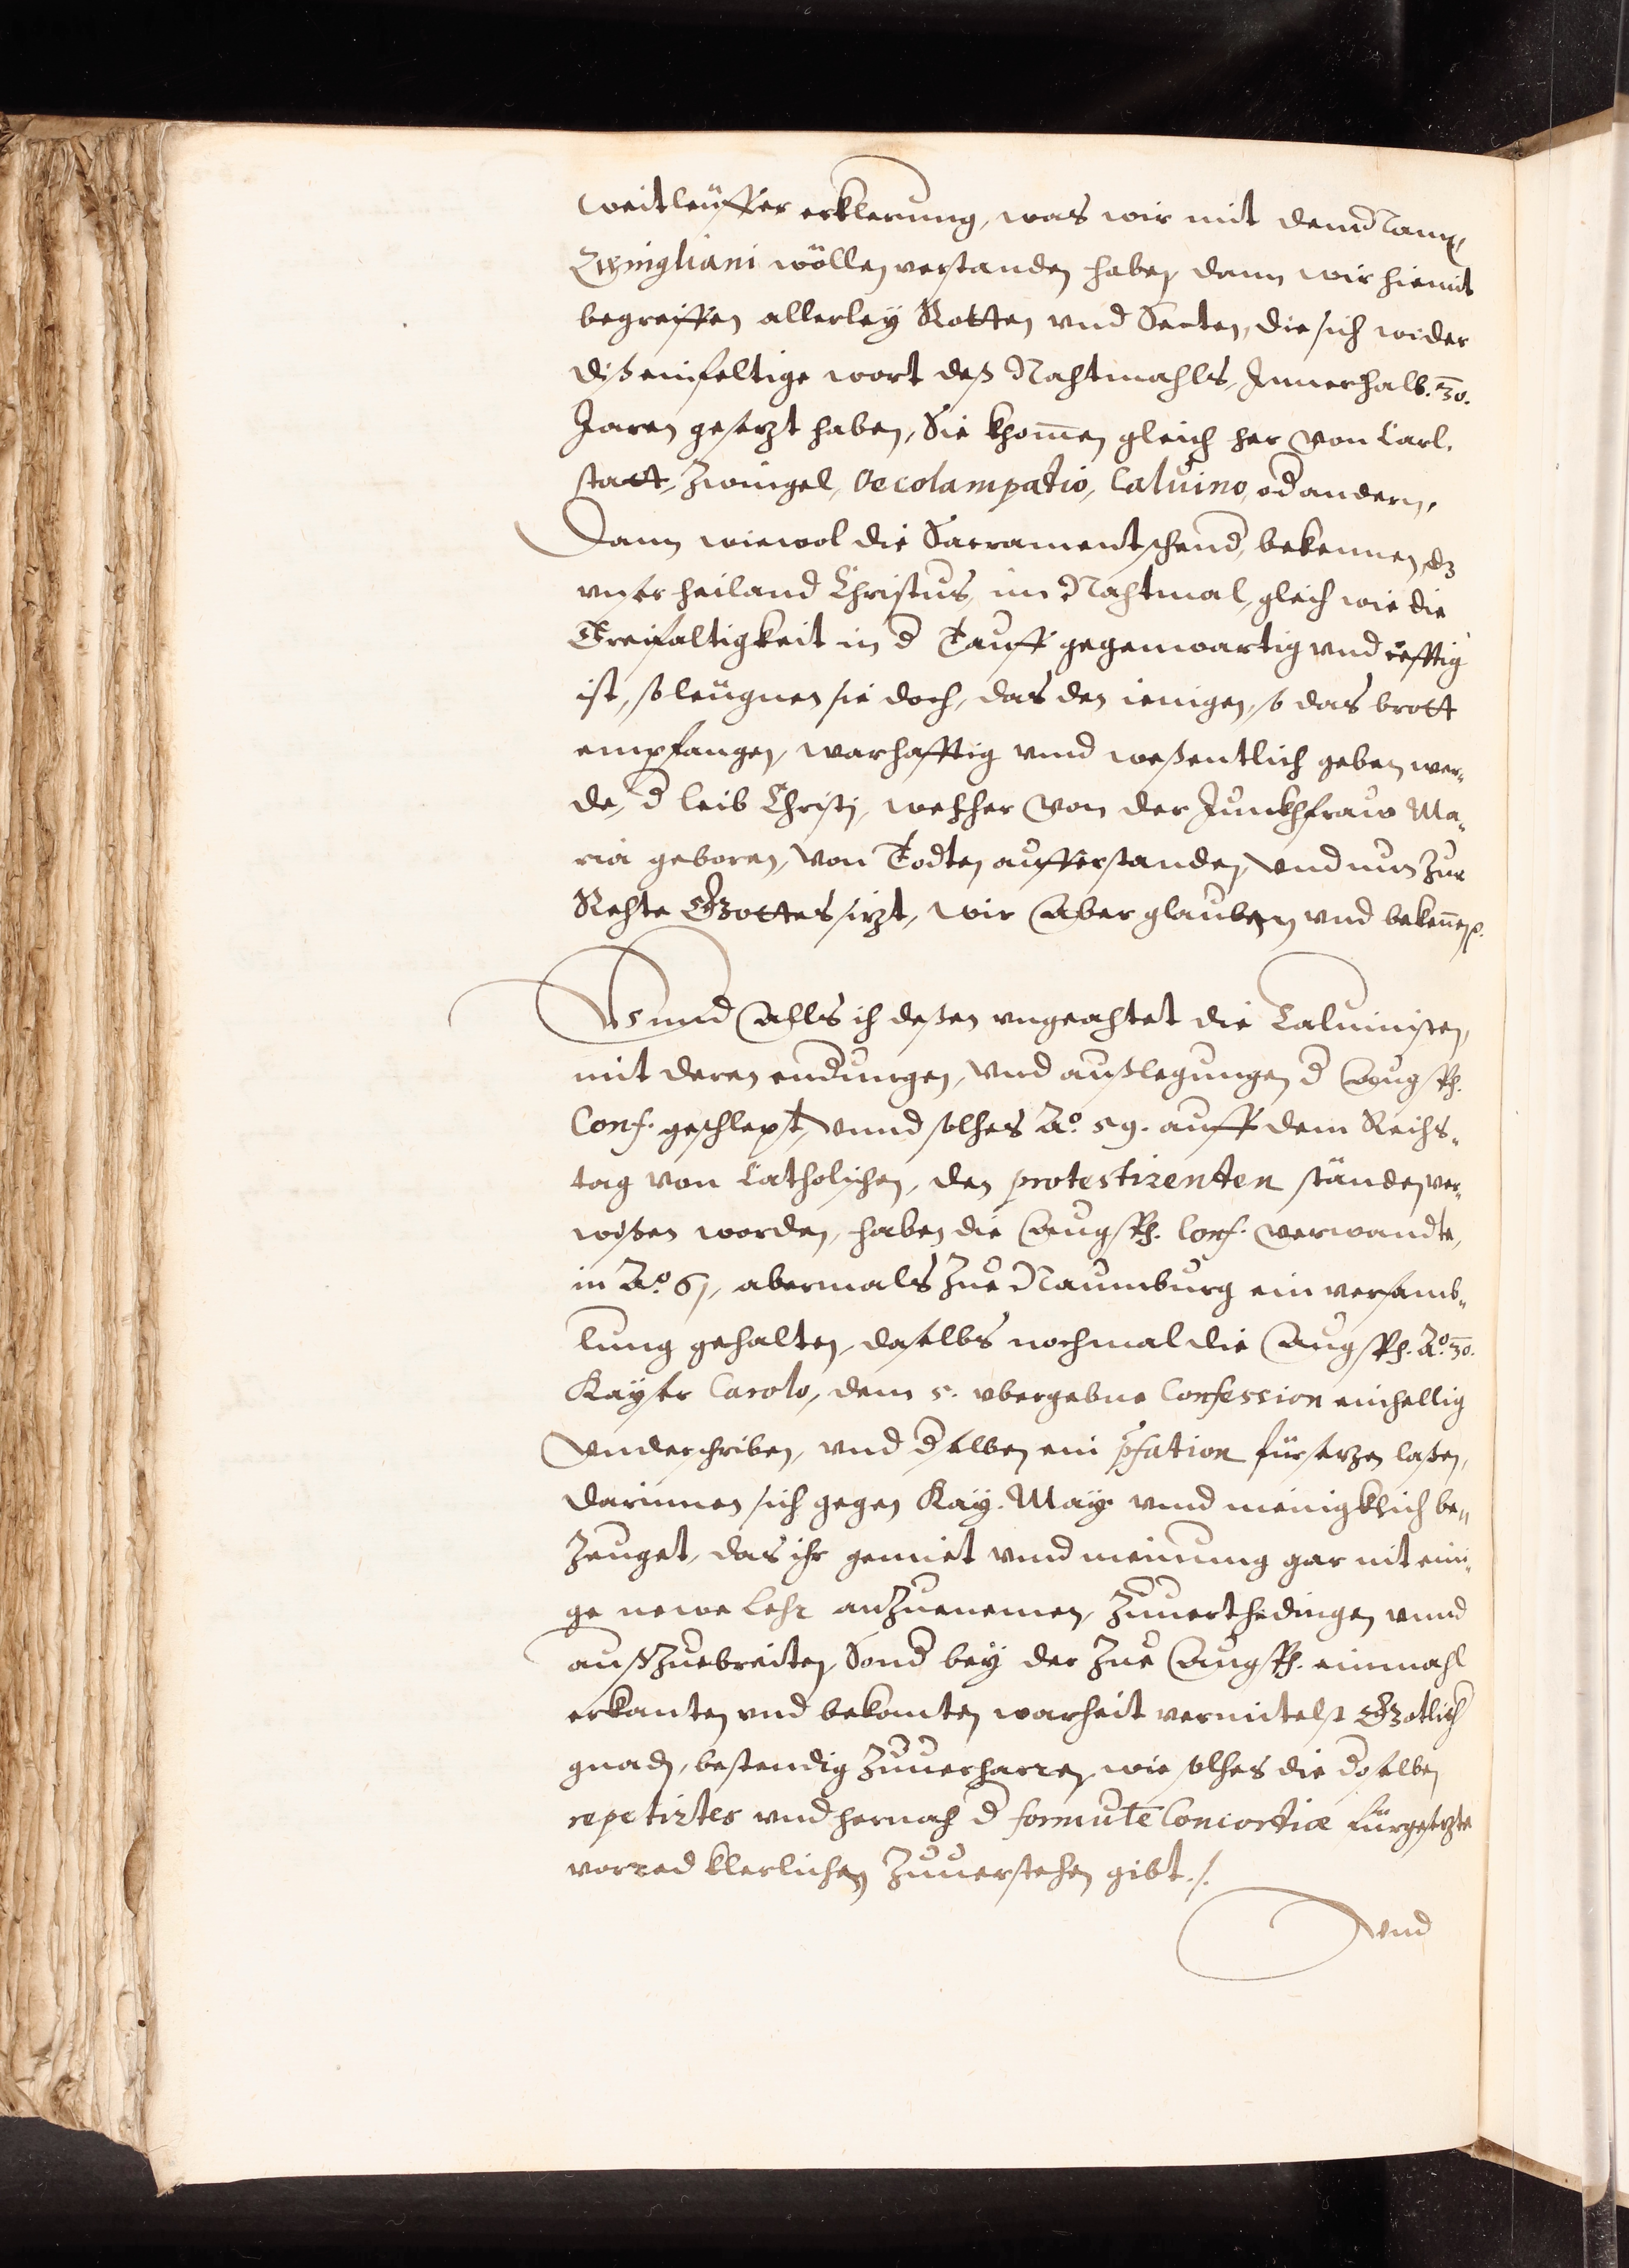 weitleuffer erklerung, was wir mit dem Namen
Zwingliani wöllen verstanden haben, dann wir hiemit
begreiffen allerley Rotten vnd Secten, die sich wider
diß einfeltige wort deß Nachtmahls, Innerhalb. 30.
Jaren gesezt haben, Sie khom̄en gleich her von Carl.
statt, Zwingel, Oecolampadio, Caluino, od andern,
Dann wiewol die Sacramentschend, bekennen, dz
vnser heiland Christus, im Nachtmal, gleich wie die
Dreifaltigkeit in d Tauff gegenwartig vnd
ist, so leügnen sie doch, das den ienigen, so das brott
empfangen, warhafftig vnnd weßentlich geben wer„
de, d leib Christj, welcher von der Junkhfraw Ma„
ria geboren, von Todten aufferstanden, vnd nun zur
Rechte Gottes sizt, wir aber glauben vnd beken̄en.
Vnnd alls ich deßen vngeachtet die Caluinisten,
mit deren endungen, vnd außlegungen d Augsp.
Conf. geschlept, vnnd solches Aº. 59. auff dem Reichs„
tag von Catholischen, den protestirenten ständen ver„
wißen worden, haben die Augsp. Conf. verwandte,
in Aº. 61, abermals zue Naumburg ein versamb„
lung gehalten, daselbs nochmal die Augsp. Aº. 30.
Kayser Carolo, dem 5. vbergebne Confession einhellig
vnderschriben, vnd dselben ein pfation fürsezen laßen,
darinnen sich gegen Kay. May. vnnd menigklich be„
zeuget, das ihr gemiet vnnd meinung gar nit eini„
ge newe Lehr anzuenemen, zuuerthedingen vnnd
außzuebreiten, Sond bey der zue Augsp. einmahl
erkanten vnd bekanten warheit vermitelst Gotlich
gnaden, bestendig zuuerharren, wie solches die dselben
repetirtes vnd hernach d formule Concordiæ fürgesezte
vorred klerlichen zuuerstehen gibt./.
Vnd